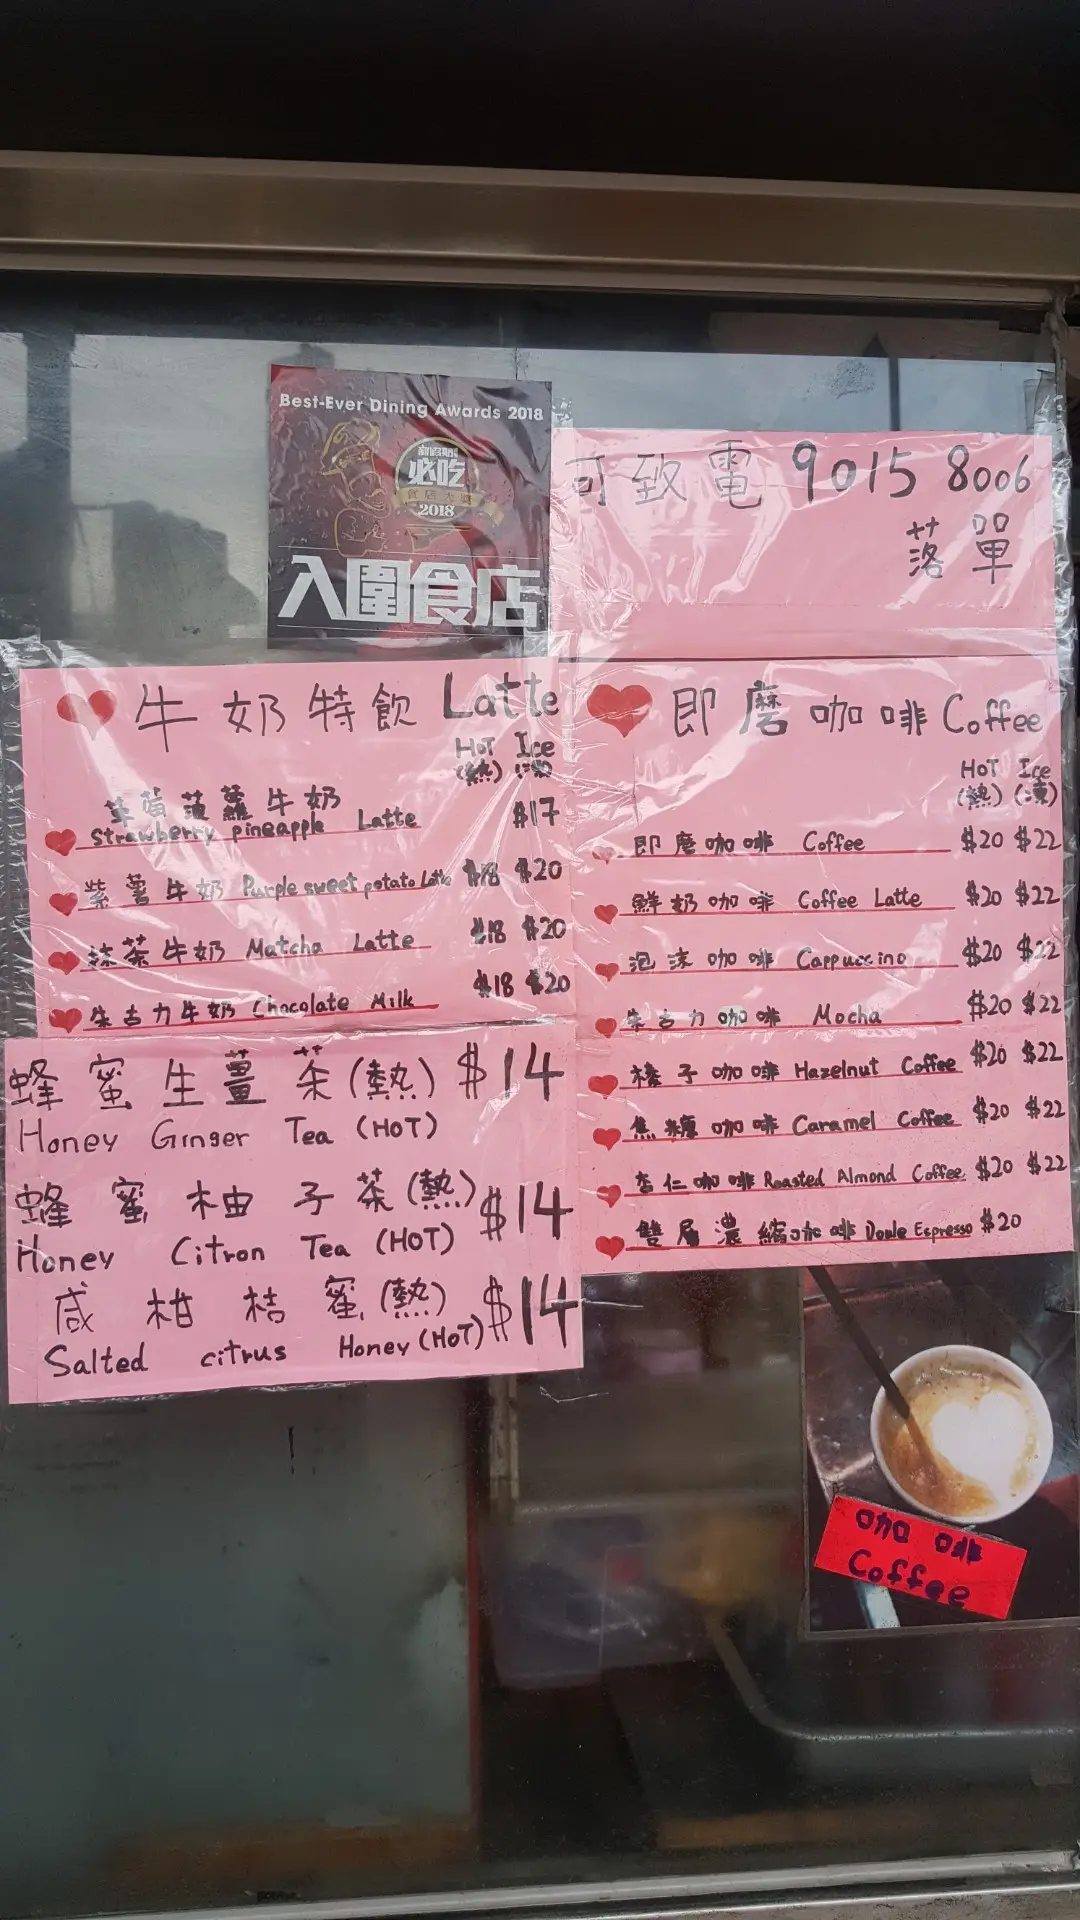 Best-Ever Dining Awards 2018
必吃
食店大獎
2018
入圍食店
可致電 9015 8006
落單
牛奶特飲 Latte
HOT Ice
(熱) (凍)
草莓菠蘿牛奶
strawberry pineapple Latte $17
紫薯牛奶 Purple sweet potato Latte $18 $20
抹茶牛奶 Matcha Latte $18 $20
朱古力牛奶 Chocolate Milk $18 $20
蜂蜜生薑茶(熱) $14
Honey Ginger Tea (HOT)
蜂蜜柚子茶(熱) $14
Honey Citron Tea (HOT)
咸柑桔蜜(熱) $14
Salted citrus Honey (HOT)
即磨咖啡 Coffee
HOT Ice
(熱) (凍)
即磨咖啡 Coffee $20 $22
鮮奶咖啡 Coffee Latte $20 $22
泡沫咖啡 Cappuccino $20 $22
朱古力咖啡 Mocha $20 $22
榛子咖啡 Hazelnut Coffee $20 $22
焦糖咖啡 Caramel Coffee $20 $22
杏仁咖啡 Roasted Almond Coffee $20 $22
雙層濃縮咖啡 Doule Espresso $20
咖啡
Coffee